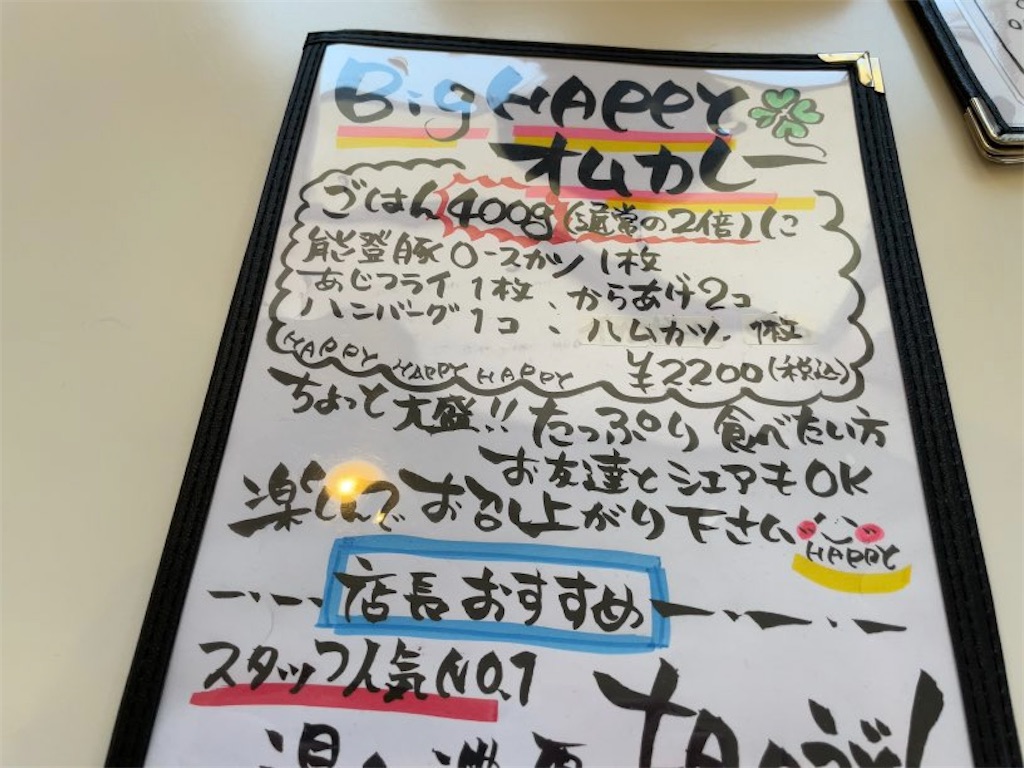 Big HAPPY
オムカレー
ごはん400g(通常の2倍)に
能登豚ロースカツ 1枚
あじフライ1枚、からあげ2コ
ハンバーグ1コ、ハムカツ、1枚
HAPPY HAPPY HAPPY ¥2200(税込)
ちょっと大盛!! たっぷり食べたい方
お友達とシェアもOK
楽しんでお召し上がり下さい
HAPPY
店長おすすめ
スタッフ人気NO.1